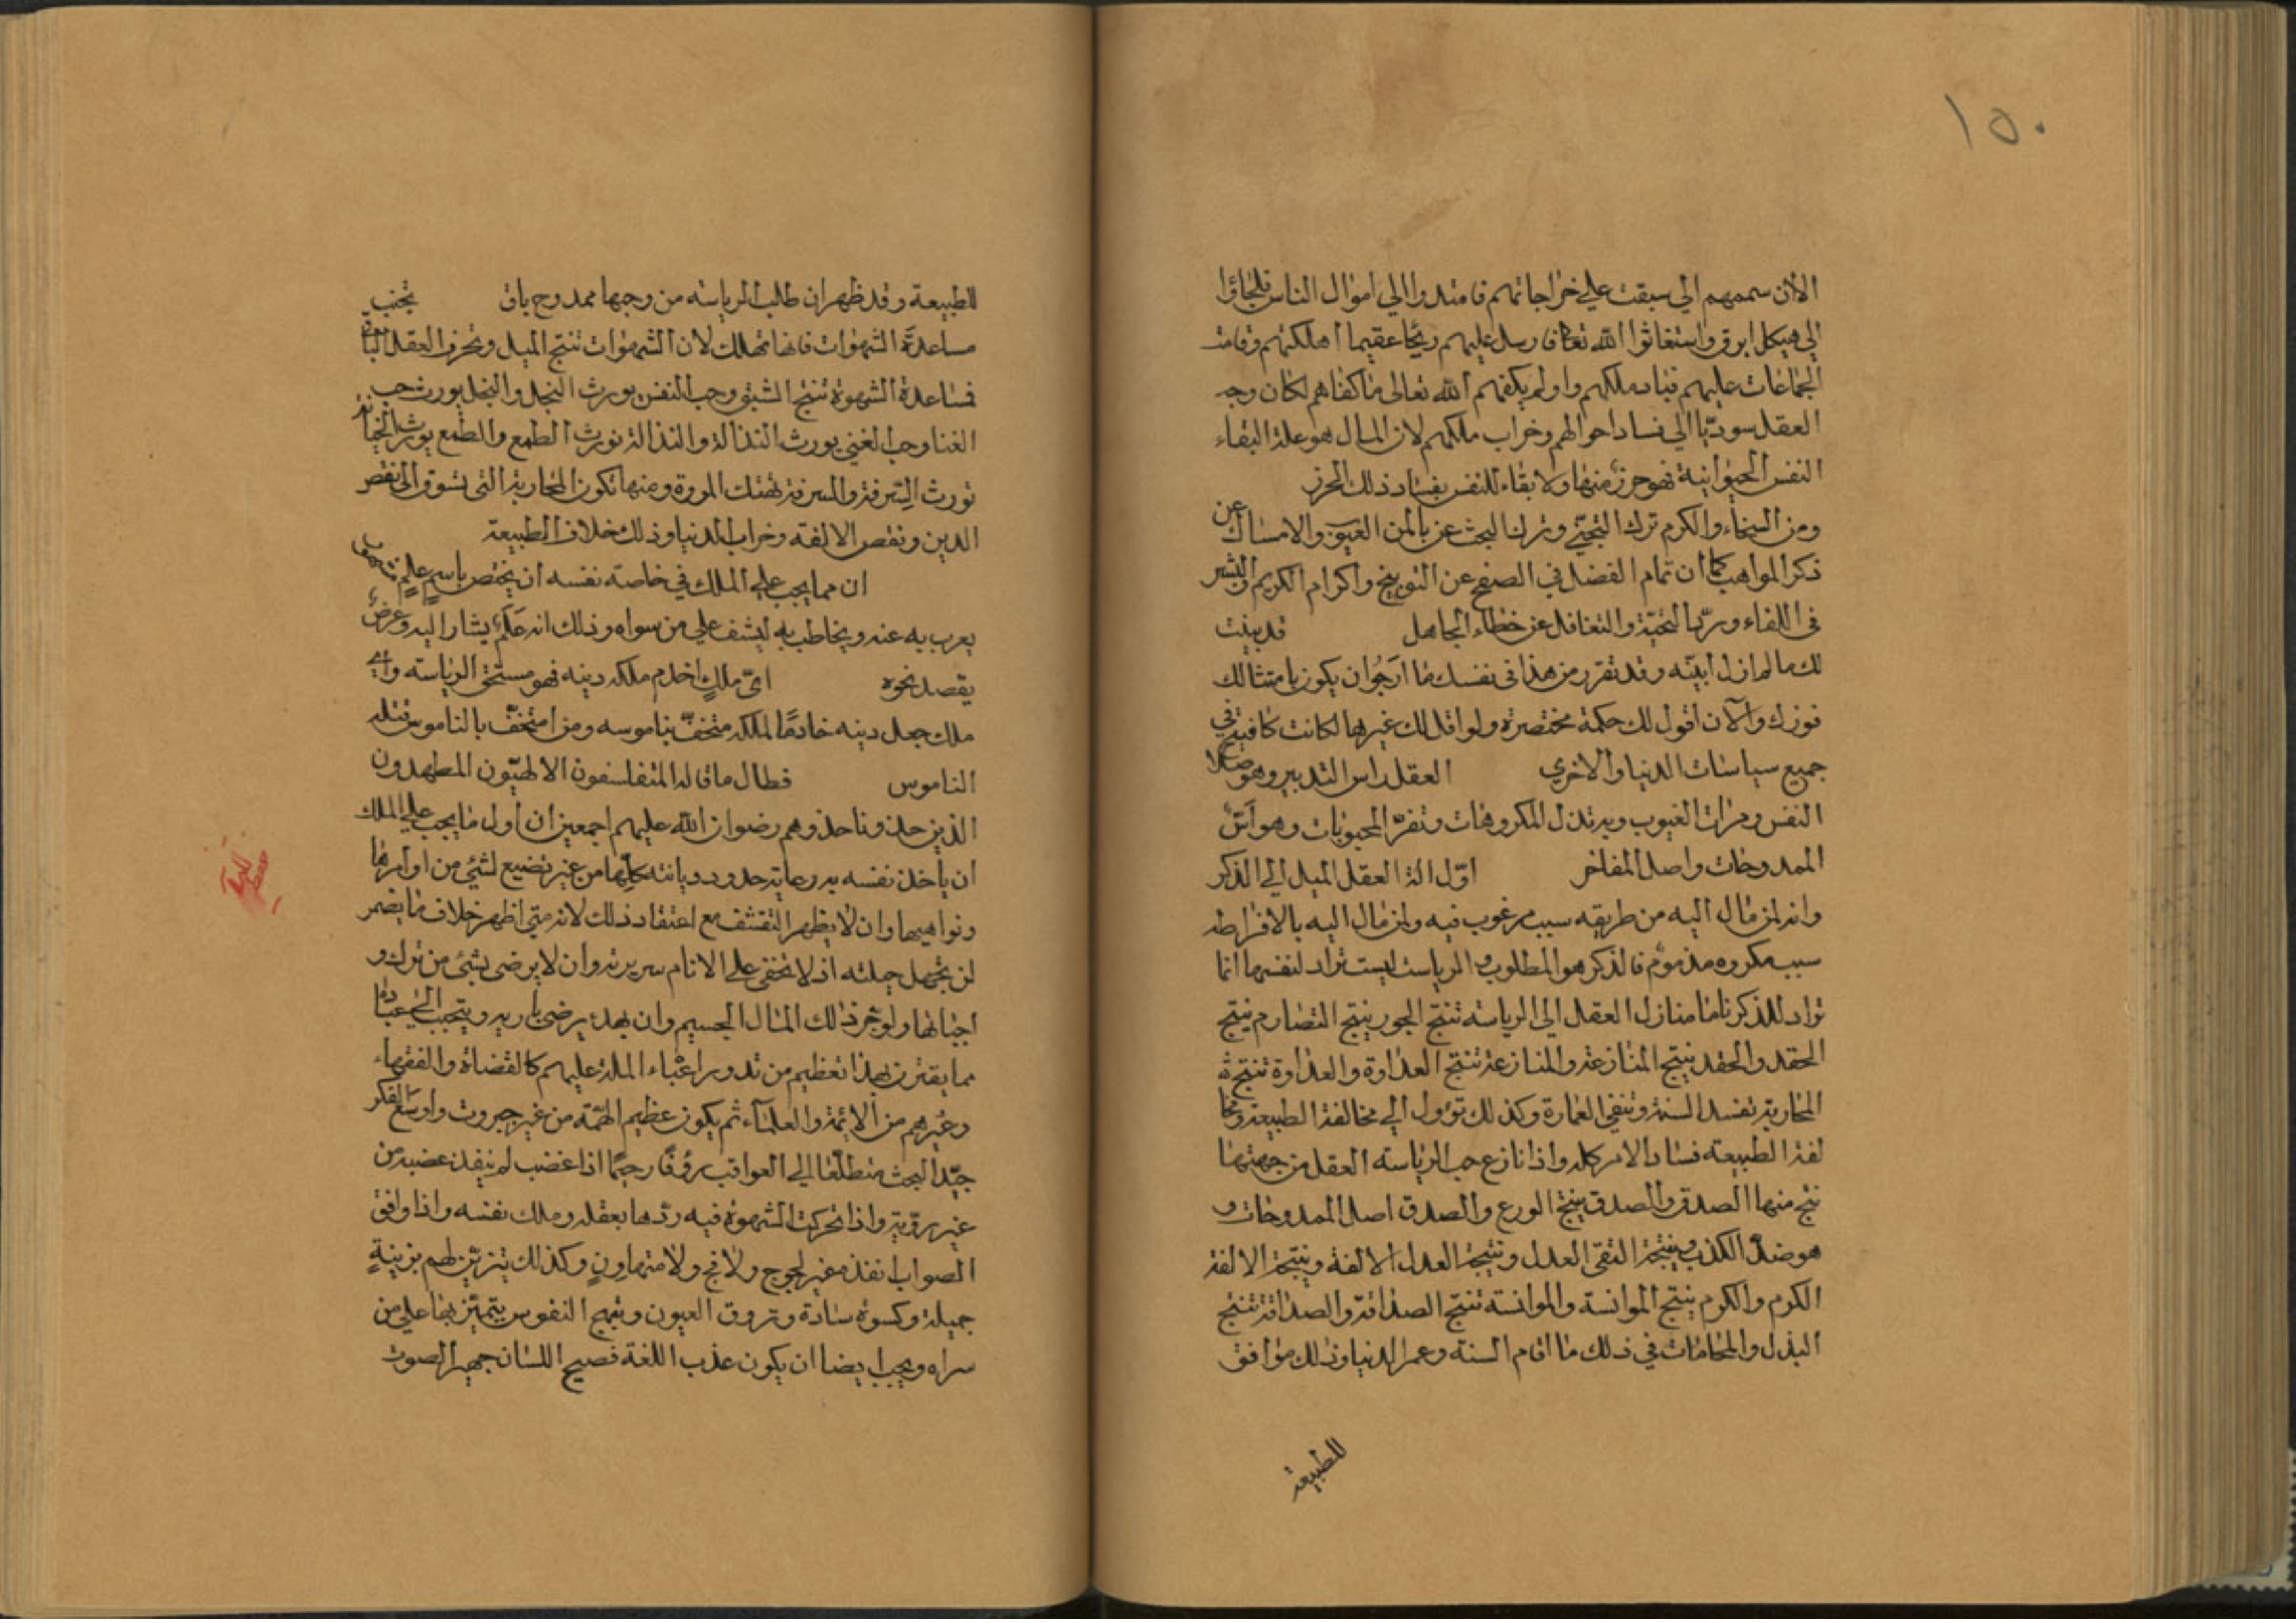 ١٥٠
الآن سممهم الي سبقت علي خراجاتهم فامتدوا الي اموال الناس فلجاؤا
الي هيكل ابرق واستغاثوا الله تعالى فارسل عليهم ريحًا عقيما اهلكتهم وقامت
الجماعات عليهم فباد ملكهم ولو لم يكفهم الله تعالى ما كفاهم لكان وجه
العقل سوديا الي فساد احوالهم وخراب ملكهم لان المال هو علة البقاء
النفس الحيوانية فهو حرز منها ولا بقاء للنفس بفساد ذلك الحرز
ومن السخاء والكرم ترك التجني وترك البحث عن باطن الغيوب والامساك عن
ذكر المواهب كما ان تمام الفضل في الصفح عن التوبيخ واكرام الكريم والبشر
في اللقاء وردّ التحية والتغافل عن خطاء الجاهل قد بينت
لك ما لم ازل ابيّنه وقد تقرر من هذا في نفسك ما ارجُو ان يكون بامتثالك
فوزك والآن اقول لك حكمة مختصرة ولو لم اقل لك غيرها لكانت كافية في
جميع سياسات الدنيا والاخري العقل راس التدبير وهو صلاح
النفس ومرات العيوب وبه تذل المكروهات وتفرّ المحبوبات وهو اسّ
الممدوحات واصل المفاخر اوّل الة العقل الميل الي الذكر
وانه لمن مال اليه من طريقه سبب مرغوب فيه ولمن مال اليه بالافراط
سبب مكروه مذموم فالذكر هو المطلوب والرياسة ليست تراد لنفسها انما
تراد للذكر فاما منازل العقل الي الرياسة تنتج الجور ينتج التضارم ينتج
الحقد والحقد ينتج المنازعة والمنازعة تنتج العداوة والعداوة تنتج
المحاربة تفسد السنة وتنفي العمارة وكذلك تؤول الي مخالفة الطبيعة ومخا
لفة الطبيعة فساد الامر كله واذا نازع حب الرياسة العقل من جهتها
نتج منها الصدق والصدق ينتج الورع والصدق اصل الممدوحات و
هو ضد الكذب ونتيجة التقى العدل ونتيجة العدل الالفة ونتيجة الالفة
الكرم والكرم ينتج الموانسة والموانسة تنتج الصداقة والصداقة تنتج
البذل والمحامات في ذلك ما اقام السنة وعمر الدنيا وذلك موافق
للطبيعة
للطبيعة وقد ظهر ان طلب الرياسة من وجهها ممدوح باق تجنب
مساعدة الشهوات فانها تهلك لان الشهوات تنتج الميل وتحرف العقل
فساعدة الشهوة تنتج الشبق وحب النفس يورث البخل والبخل يورث حب
الغنا وحب الغني يورث النذالة والنذالة تورث الطمع والطمع يورث الخيانة
تورث السرقة والسرقة تهتك المروة ومنها تكون المحاربة التي تسوق الي نقص
الدين ونقص الالفة وخراب الدنيا وذلك خلاف الطبيعة
ان مما يجب علي الملك في خاصة نفسه ان يختص باسم علم
يعرب به عنه ويخاطب به ليشف علي من سواه وذلك انه علم يشار اليه وغرض
يقصد نحوه ايّ ملك اخدم ملكه دينه فهو مستحق الرياسة واي
ملك جعل دينه خادمًا لملكه متخفّ بناموسه ومن استخفّ بالناموس قتله
الناموس فطال ما قاله المتفلسفون الالهيّون المطهدون
الذين حذوناحذوهم رضوان الله عليهم اجمعين ان اول ما يجب علي الملك
ان ياخذ نفسه به رعاية حدود ديانته كلها من غير تضييع لشئ من اوامرها
ونواهيها وان لا يظهر التقشف مع اعتقاد ذلك لانه متي اظهر خلاف ما يضمر
لن تجهل جملته اذ لا تخفي علي الانام سريرته وان لا يرضي بشئ من ترك و
اجبانها ولو جرّ ذلك المال الجسيم وان بهذا يرضي باريه ويتحبب الي عباده
مما يقترن بهذا تعظيم من تدور اعباء الملة عليهم كالقضاة والفقهاء
وغيرهم من الائمة والعلماء ثم يكون عظيم الهمّة من غير جبروت واوسع الفكر
جيّد البحث متطلّعا الي العواقب رؤفًا رحيمًا اذا غضب لم ينفذ غضبه من
غير رويّة واذا تحركت الشهوة فيه ردّها بعقله وملك نفسه واذا وافق
الصواب انفذه غير لجوج ولا فج ولا متهاونٍ وكذلك يتزيّن لهم بزينةٍ
جميلة وكسوة سادة وتروق العيون وتبهج النفوس يتميّز بها علي من
سواه ويجب ايضا ان يكون عذب اللغة فصيح اللسان جهير الصوت